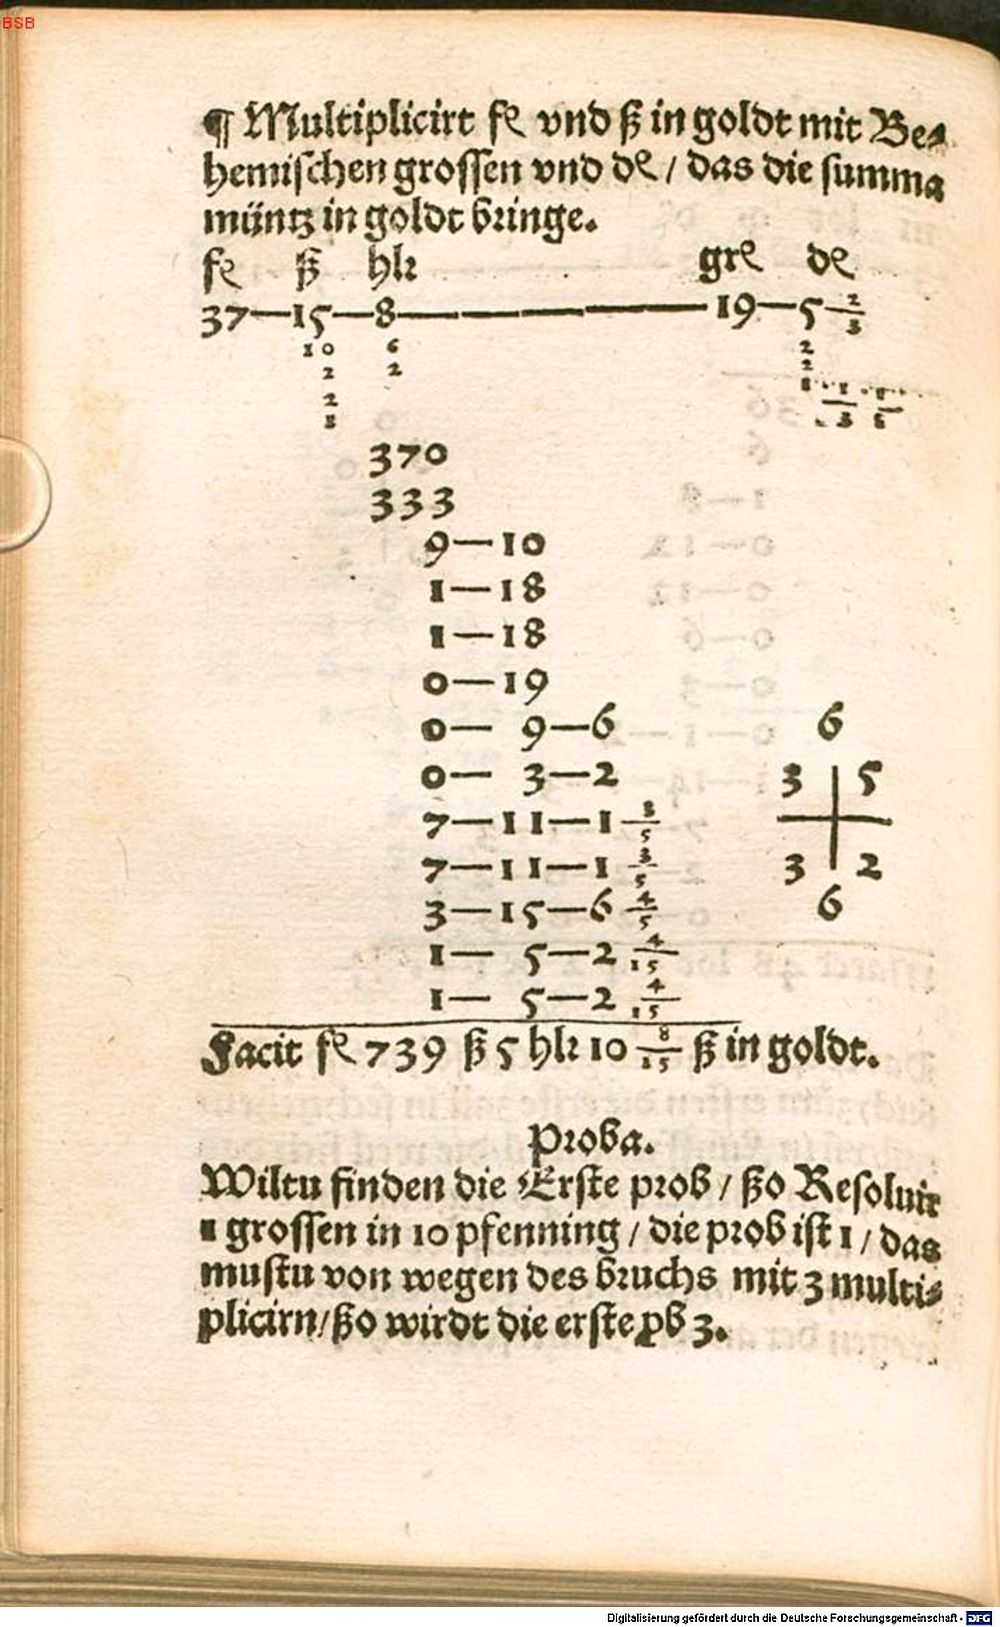 BSB
¶ Multiplicirt fl vnd ß in goldt mit Be⸗
hemischen grossen vnd dl / das die summa
müntz in goldt bringe.
fl ß hlr grl dl
37—15—8————19—5 2/3
10 6 2
2 2 2
2 1 1/3 1/8
1
370
333
9—10
1—18
1—18
0—19
0— 9—6
0— 3—2
7—11—1 3/5
7—11—1 3/5
3—15—6 4/5
1— 5—2 4/15
1— 5—2 4/15
6
3 5
3 2
6
Facit fl 739 ß 5 hlr 10 8/15 ß in goldt.
Proba.
Wiltu finden die Erste prob / ßo Resoluir
1 grossen in 10 pfenning / die prob ist 1 / das
mustu von wegen des bruchs mit 3 multi⸗
plicirn / ßo wirdt die erste pb 3.
Digitalisierung gefördert durch die Deutsche Forschungsgemeinschaft - DFG